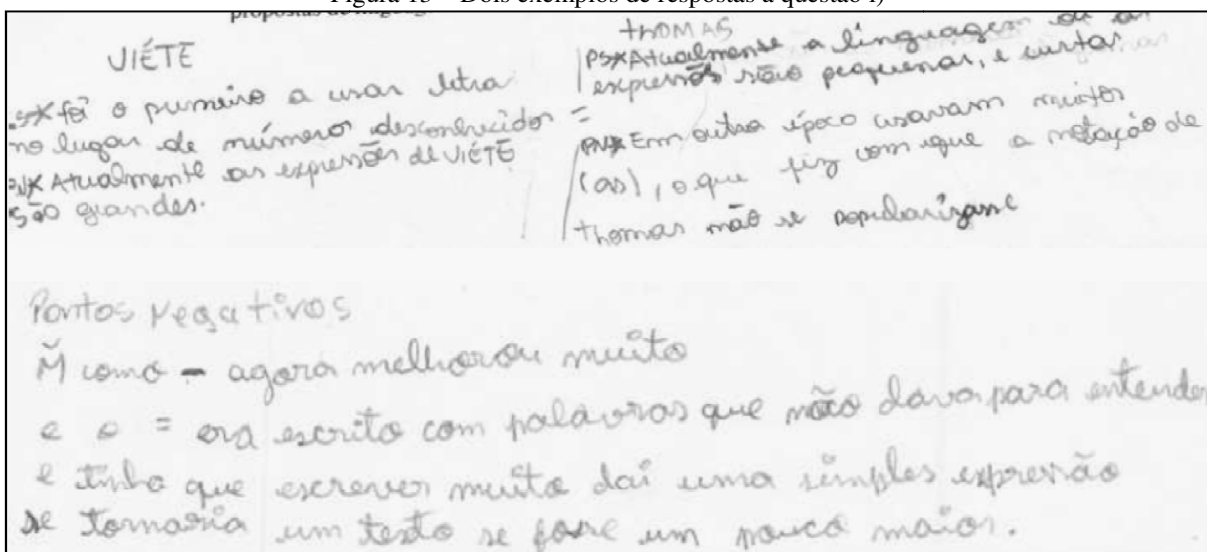 Figura 15 – Dois exemplos de respostas à questão i)
VIÉTE
PS* foi o primeiro a usar letra
no lugar de números desconhecidos =
PN* Atualmente as expressões de VIÉTE
são grandes.
thomas
PS* Atualmente a linguagem ou as
expressões são pequenas, e curtas
PN* Em outra época usavam muitos
(as), o que fiz com que a notação de
thomas não se popularizasse
Pontos Negativos
M̌ como - agora melhorou muito
e o = era escrito com palavras que não dava para entender
e tinha que escrever muito daí uma simples expressão
se tornaria um texto se fosse um pouco maior.